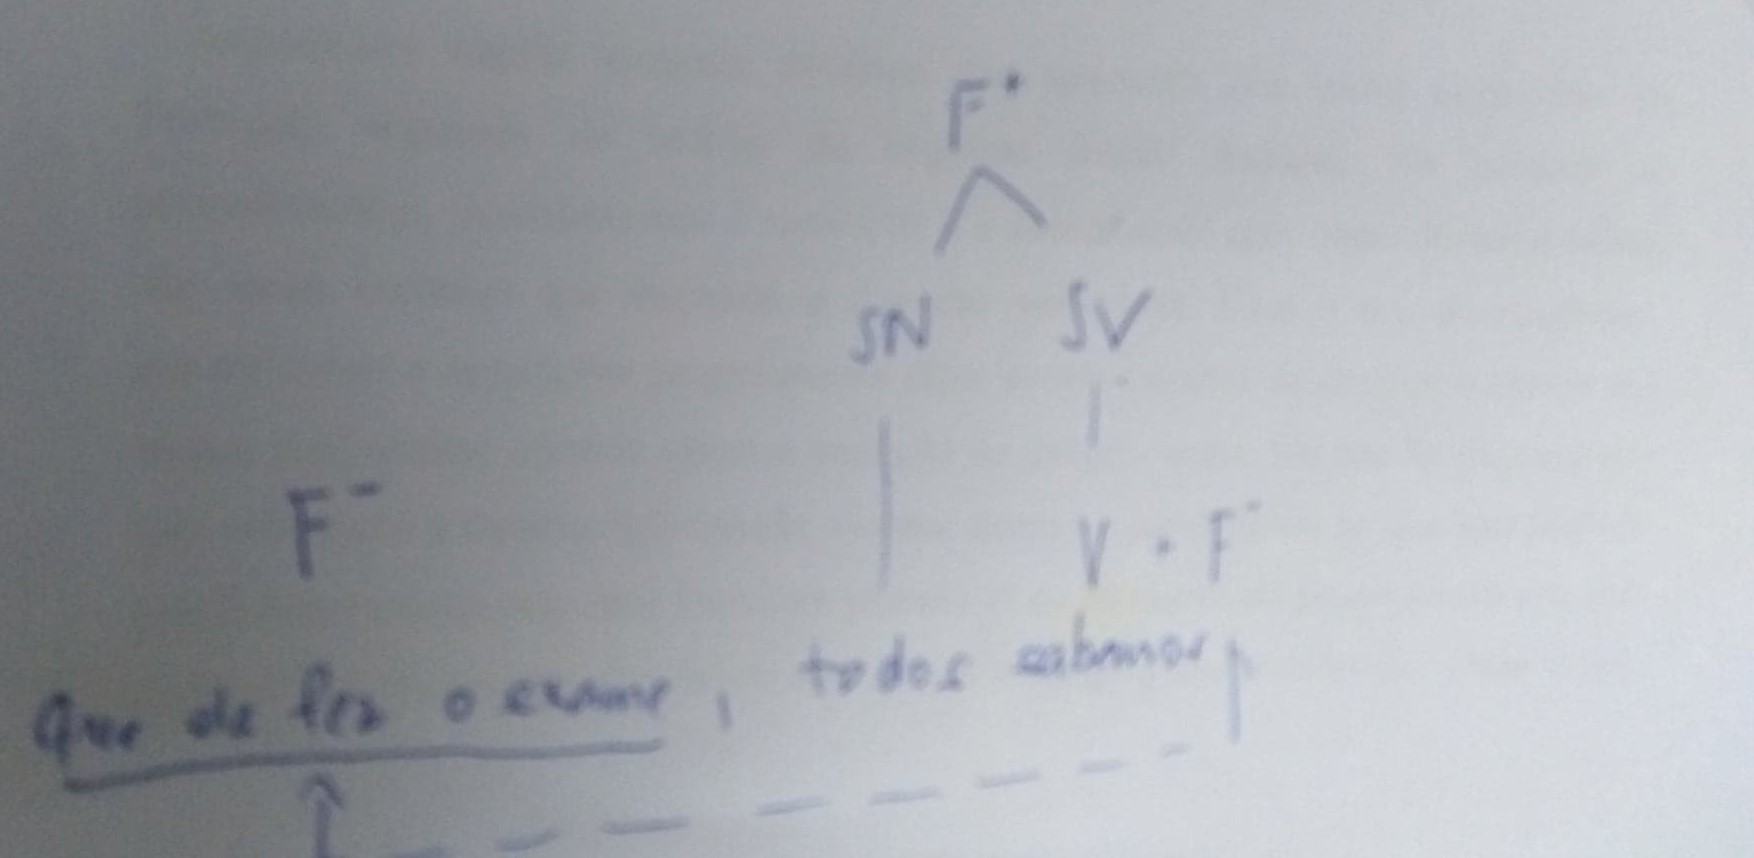 F+
SN SV
F- V + F-
Que ele fez o exame, todos sabemos